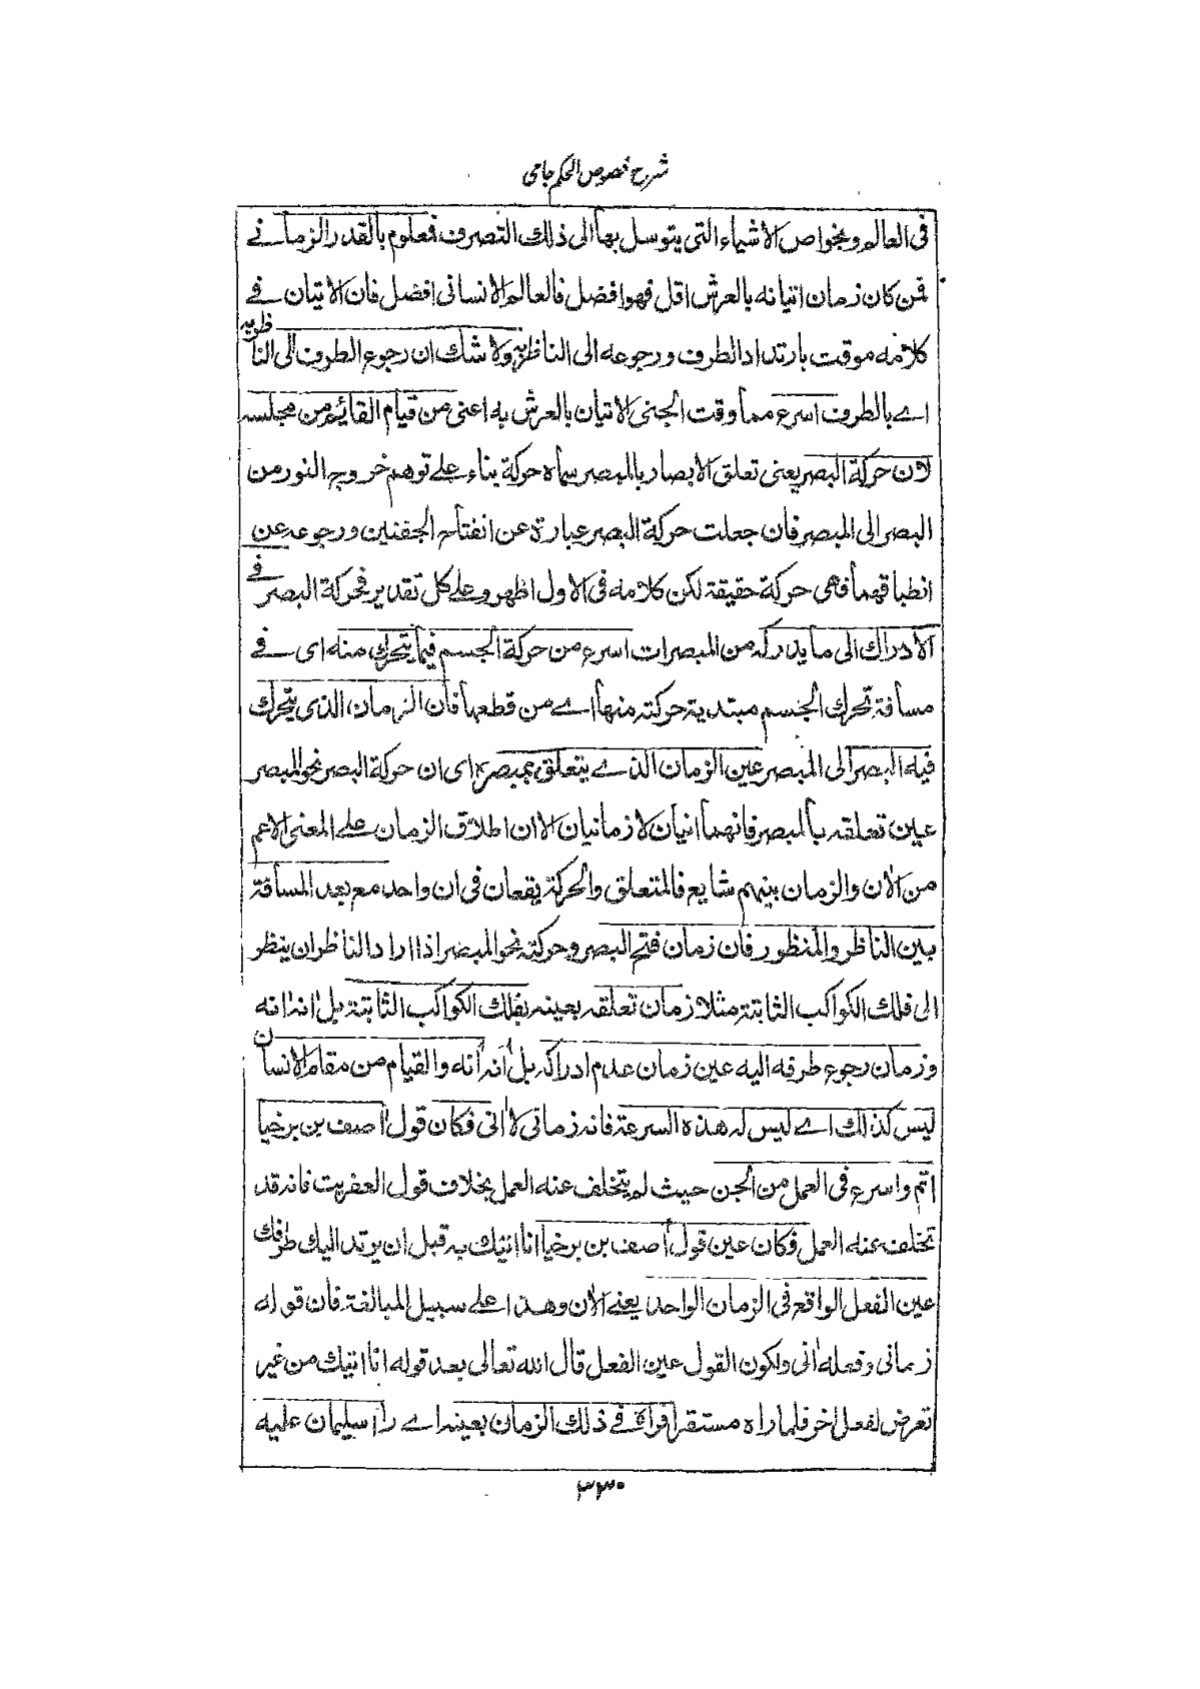 شرح فصوص الحکم جامی
فی العالم وبخواص الاشیاء التی یتوسل بها الی ذلك التصرف فعلوم بالقدر الزمانے
فمن کان زمان اتیانه بالعرش اقل فهو افضل فالعالم الانسانی افضل فان الاتیان فے
کلامه موقت بارتداد الطرف ورجوعه الی الناظربه ولا شك ان رجوع الطرف الی الناظربه
اے بالطرف اسرع مما وقت الجنی الاتیان بالعرش به اعنی من قیام القائم من مجلسه
لان حرکة البصر یعنی تعلق الابصار بالمبصر سماه حرکة بناء علے توهم خروج النور من
البصر الی المبصر فان جعلت حرکة البصر عبارة عن انفتاح الجفنین ورجوعه عن
انطباقهما فهی حرکة حقیقة لکن کلامه فی الاول اظهر وعلے کل تقدیر فحرکة البصر فے
الادراك الی ما یدرکه من المبصرات اسرع من حرکة الجسم فیما یتحرك منه ای فے
مسافة تحرك الجسم مبتدیة حرکته منها اے من قطعها فان الزمان الذی یتحرك
فیه البصر الی المبصر عین الزمان الذے یتعلق بمبصره ای ان حرکة البصر نحو المبصر
عین تعلقه بالمبصر فانهما انیان لا زمانیان الا ان اطلاق الزمان علے المعنی الاعم
من الان والزمان بینهم شایع فالمتعلق والحرکة یقعان فی ان واحد مع بعد المسافة
بین الناظر والمنظور فان زمان فتح البصر وحرکته نحو المبصر اذا اراد الناظر ان ینظر
الی فلك الکواکب الثابتة مثلا زمان تعلقه بعینه بفلك الکواکب الثابتة بل انه انه
وزمان رجوع طرفه الیه عین زمان عدم ادراکه بل انه انه والقیام من مقام الانسان
لیس کذلك اے لیس له هذه السرعة فانه زمانی لا انی فکان قول اصف بن برخیا
اتم واسرع فی العمل من الجن حیث لم یتخلف عنه العمل بخلاف قول العفریت فانه قد
تخلف عنه العمل فکان عین قول اصف بن برخیا انا اتیك به قبل ان یرتد الیك طرفك
عین الفعل الواقع فی الزمان الواحد یعنے الان وهذا علے سبیل المبالغة فان قوله
زمانی وفعله انی ولکون القول عین الفعل قال الله تعالی بعد قوله انا اتیك من غیر
تعرض لفعل اخر فلما راه مستقرا فراه فے ذلك الزمان بعینه اے را سلیمان علیه
۳۳۰